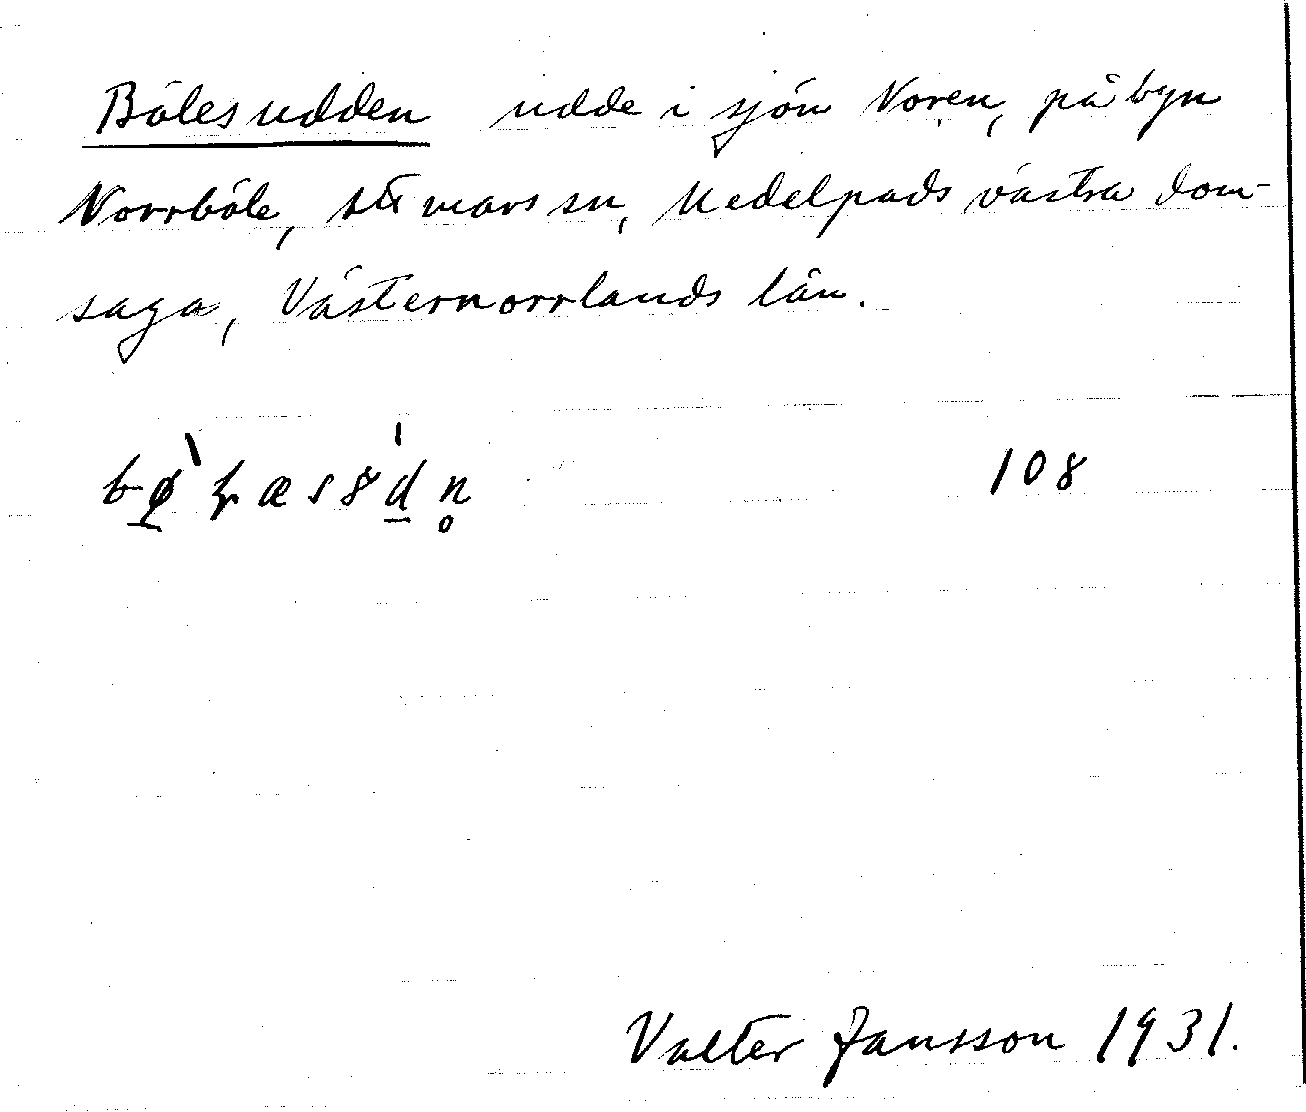 Bölesudden udde i sjön Noren, på byn
Norrböle, Attmars sn, Medelpads västra dom-
saga, Västernorrlands län.
108
Valter Jansson 1931.